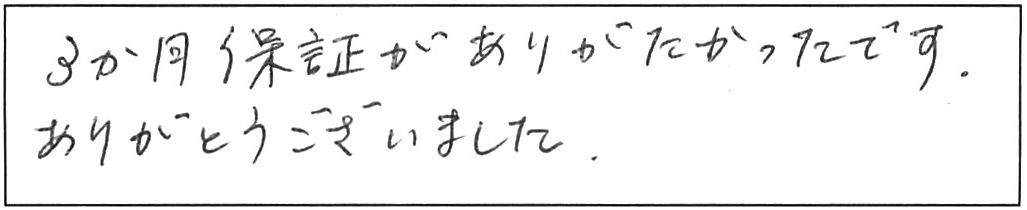 3か月保証がありがたかったです.
ありがとうございました.